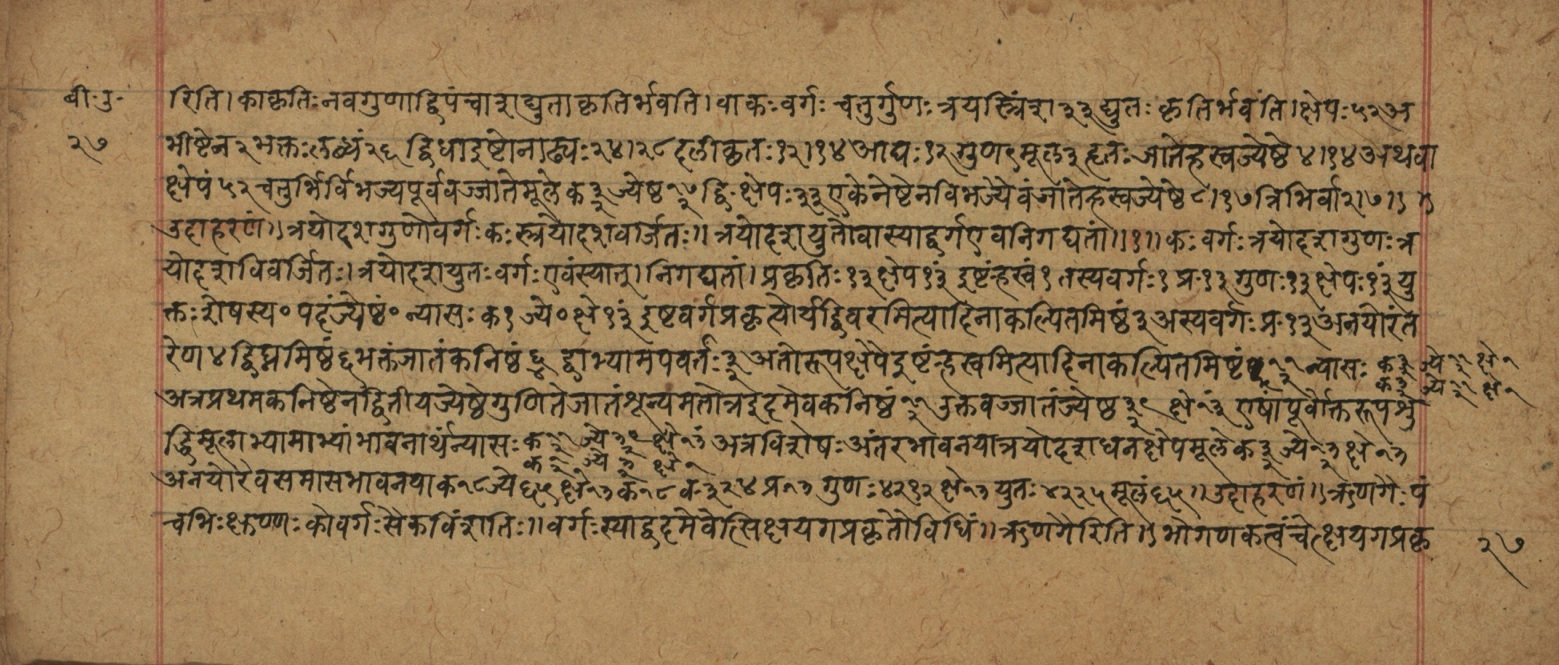 बी॰उ॰
२७
रिति। काकृतिः नवगुणाद्विपंचाशद्युताकृतिर्भवति। वाकः वर्गः चतुर्गुणः त्रयस्त्रिंश३३द्युतः कृतिर्भवंति। क्षेपः ५२ अ
भीष्टेन२भक्तः लब्धं२६ द्विधाइष्टोनाढ्यः २४।२८ दलीकृतः १२।१४ आद्यः १२ गुण९मूल३हृतः जातेह्रस्वज्येष्ठे ४।१४ अथवा
क्षेपं ५२ चतुर्भिर्विभज्यपूर्ववज्जातेमूले क ज्येष्ठ द्वि॰ क्षेपः ३३ एकेनेष्टेनविभज्येवंजातेह्रस्वज्येष्ठे ८।१७ त्रिभिर्वा २।७।
उदाहरणं॥ त्रयोदशगुणोवर्गः कः स्त्रयोदशवर्जितः॥ त्रयोदशयुतोवास्याद्वर्गएवनिगद्यतां॥१॥ कः वर्गः त्रयोदशगुणः त्र
योदशविवर्जितः। त्रयोदशयुतः वर्गः एवंस्यात्। निगद्यतां। प्रकृतिः १३ क्षेप १३ं इष्टंह्रस्वं १ तस्यवर्गः १ प्र॰ १३ गुणः १३ क्षेपः १३ं यु
क्तः शेषस्य ० पदंज्येष्ठं ० न्यासः क १ ज्ये ० क्षे १३ं इष्टवर्गप्रकृत्योर्यद्विवरमित्यादिनाकल्पितमिष्ठं ३ अस्यवर्गः प्र॰ १३ अनयोरंत
रेण ४ द्विघ्नमिष्ठं ६ भक्तंजातंकनिष्ठं द्वाभ्यामपवर्तः अतोरूपक्षेपेइष्टंह्रस्वमित्यादिनाकल्पितमिष्टं न्यासः
अत्रप्रथमकनिष्ठेनद्वितीयज्येष्ठेगुणितेजातंशून्यमतोत्रइदमेवकनिष्ठं उक्तवज्जातंज्येष्ठ एषांपूर्वोक्तरूपशु
द्धिमूलाभ्यामाभ्यांभावनार्थंन्यासः अत्रविशेषः अंतरभावनयात्रयोदशघनक्षेपमूले
अनयोरेवसमासभावनयाक १८ ज्ये ६५ क्षे १३ क १८ व॰ ३२४ प्र १३ गुणः ४२१२ क्षे १३ युतः ४२२५ मूलं ६५॥ उदाहरणं॥ ऋणगैः पं
चभिः क्षुण्णः कोवर्गः सैकविंशतिः॥ वर्गः स्याद्वदमेवेत्सिक्षयगप्रकृतोविधिं॥ ऋणगैरिति॥ भोगणकत्वंचेत्क्षयगप्रकृ
२७